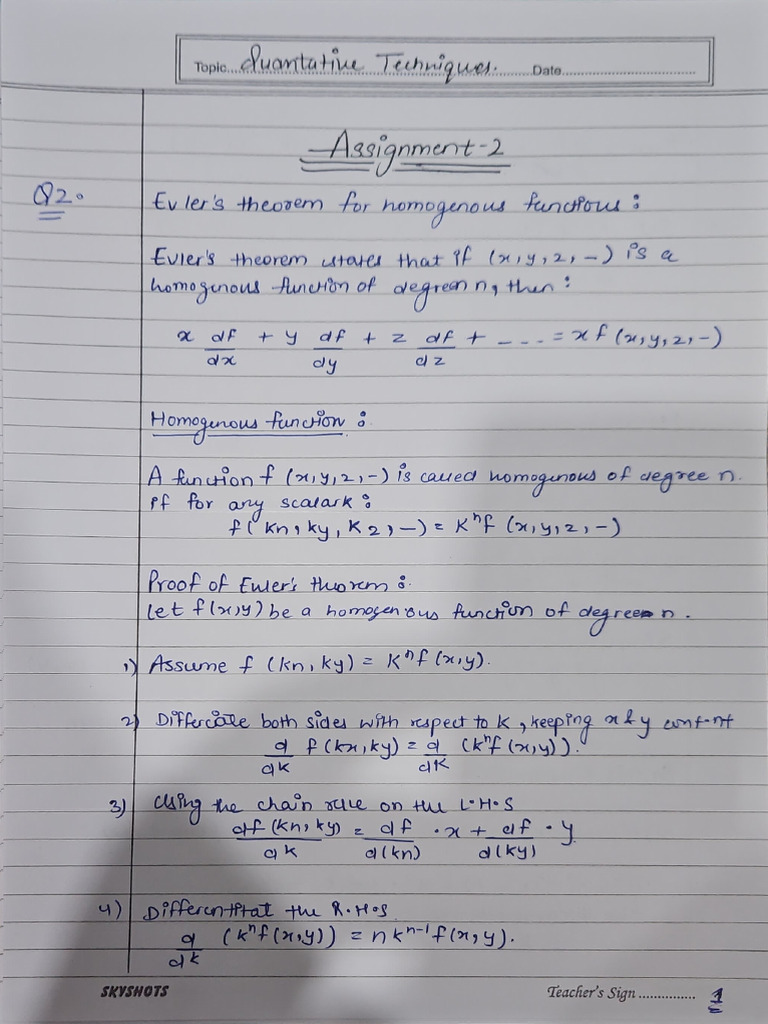 Topic.... Quantative Techniques. Date....
Assignment-2
Q2. Euler's theorem for homogenous functions :
Euler's theorem states that if (x, y, z, -) is a
homogenous function of degree n, then :
x df/dx + y df/dy + z df/dz + ---- = x f (x, y, z, -)
Homogenous function :
A function f (x, y, z, -) is called homogenous of degree n.
if for any scalar k :
f( kn, ky, Kz, -) = K^n f (x, y, z, -)
Proof of Euler's theorem :
Let f(x,y) be a homogenous function of degree n.
1) Assume f (kn, ky) = K^n f (x,y).
2) Differciate both sides with respect to K, keeping x & y
d/dk f(kx, ky) = d/dK (k^n f(x,y)).
3) Using the chain rule on the L.H.S
df(kn, ky)/dk = df/d(kn) . x + df/d(ky) . y
4) the R.H.S.
d/dk (k^n f(x,y)) = n k^n-1 f(x,y).
SKYSHOTS Teacher's Sign............... 1